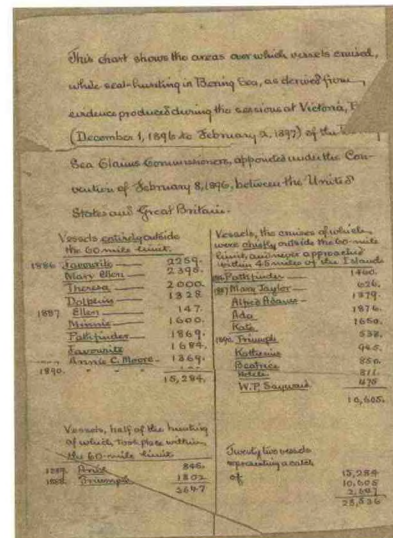 This chart shows the areas over which vessels cruised,
while seal-hunting in Bering Sea, as derived from
evidence produced during the sessions at Victoria,
(December 1, 1896 to February 2, 1897) of the
Sea Claims Commissioners, appointed under the Con-
vention of February 8, 1896, between the United
States and Great Britain.
Vessels entirely outside
the 60-mile limit.
1886 Favourite 2259.
Mary Ellen 2390.
Theresa 2000.
Dolphin
1887 Ellen 147.
Minnie 1600.
Pathfinder 1869.
Favourite 1684.
Annie C. Moore 1369.
1890. " "
15,284.
Vessels, half of the hunting
of which took place within
the 60-mile limit
845.
Triumph 1802
2647
Vessels, the cruises of which
were chiefly outside the 60-mile
limit, and never approached
within 45 miles of the Islands
Pathfinder 1460.
1887 Mary Taylor 626.
Alfred Adams 1379.
Ada 1876.
Kate
1890. Triumph
Katherine
Beatrice
W.P. Sayward
10,605.
Twenty two vessels
representing a catch
of 15,284
10,605
2,647
28,536